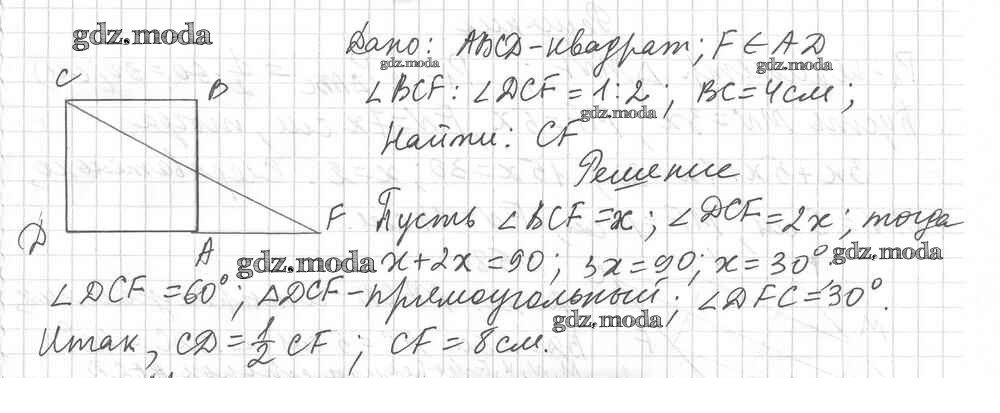 gdz.moda
Дано: ABCD - квадрат; F ∈ AD
gdz.moda gdz.moda
C B
∠BCF : ∠DCF = 1:2; BC = 4см;
gdz.moda
Найти: CF
Решение
D A F
Пусть ∠BCF = x; ∠DCF = 2x; тогда
gdz.moda x + 2x = 90; 3x = 90; x = 30°. gdz.moda
∠DCF = 60°; △DCF - прямоугольный; ∠DFC = 30°.
gdz.moda
Итак, CD = 1/2 CF; CF = 8см.